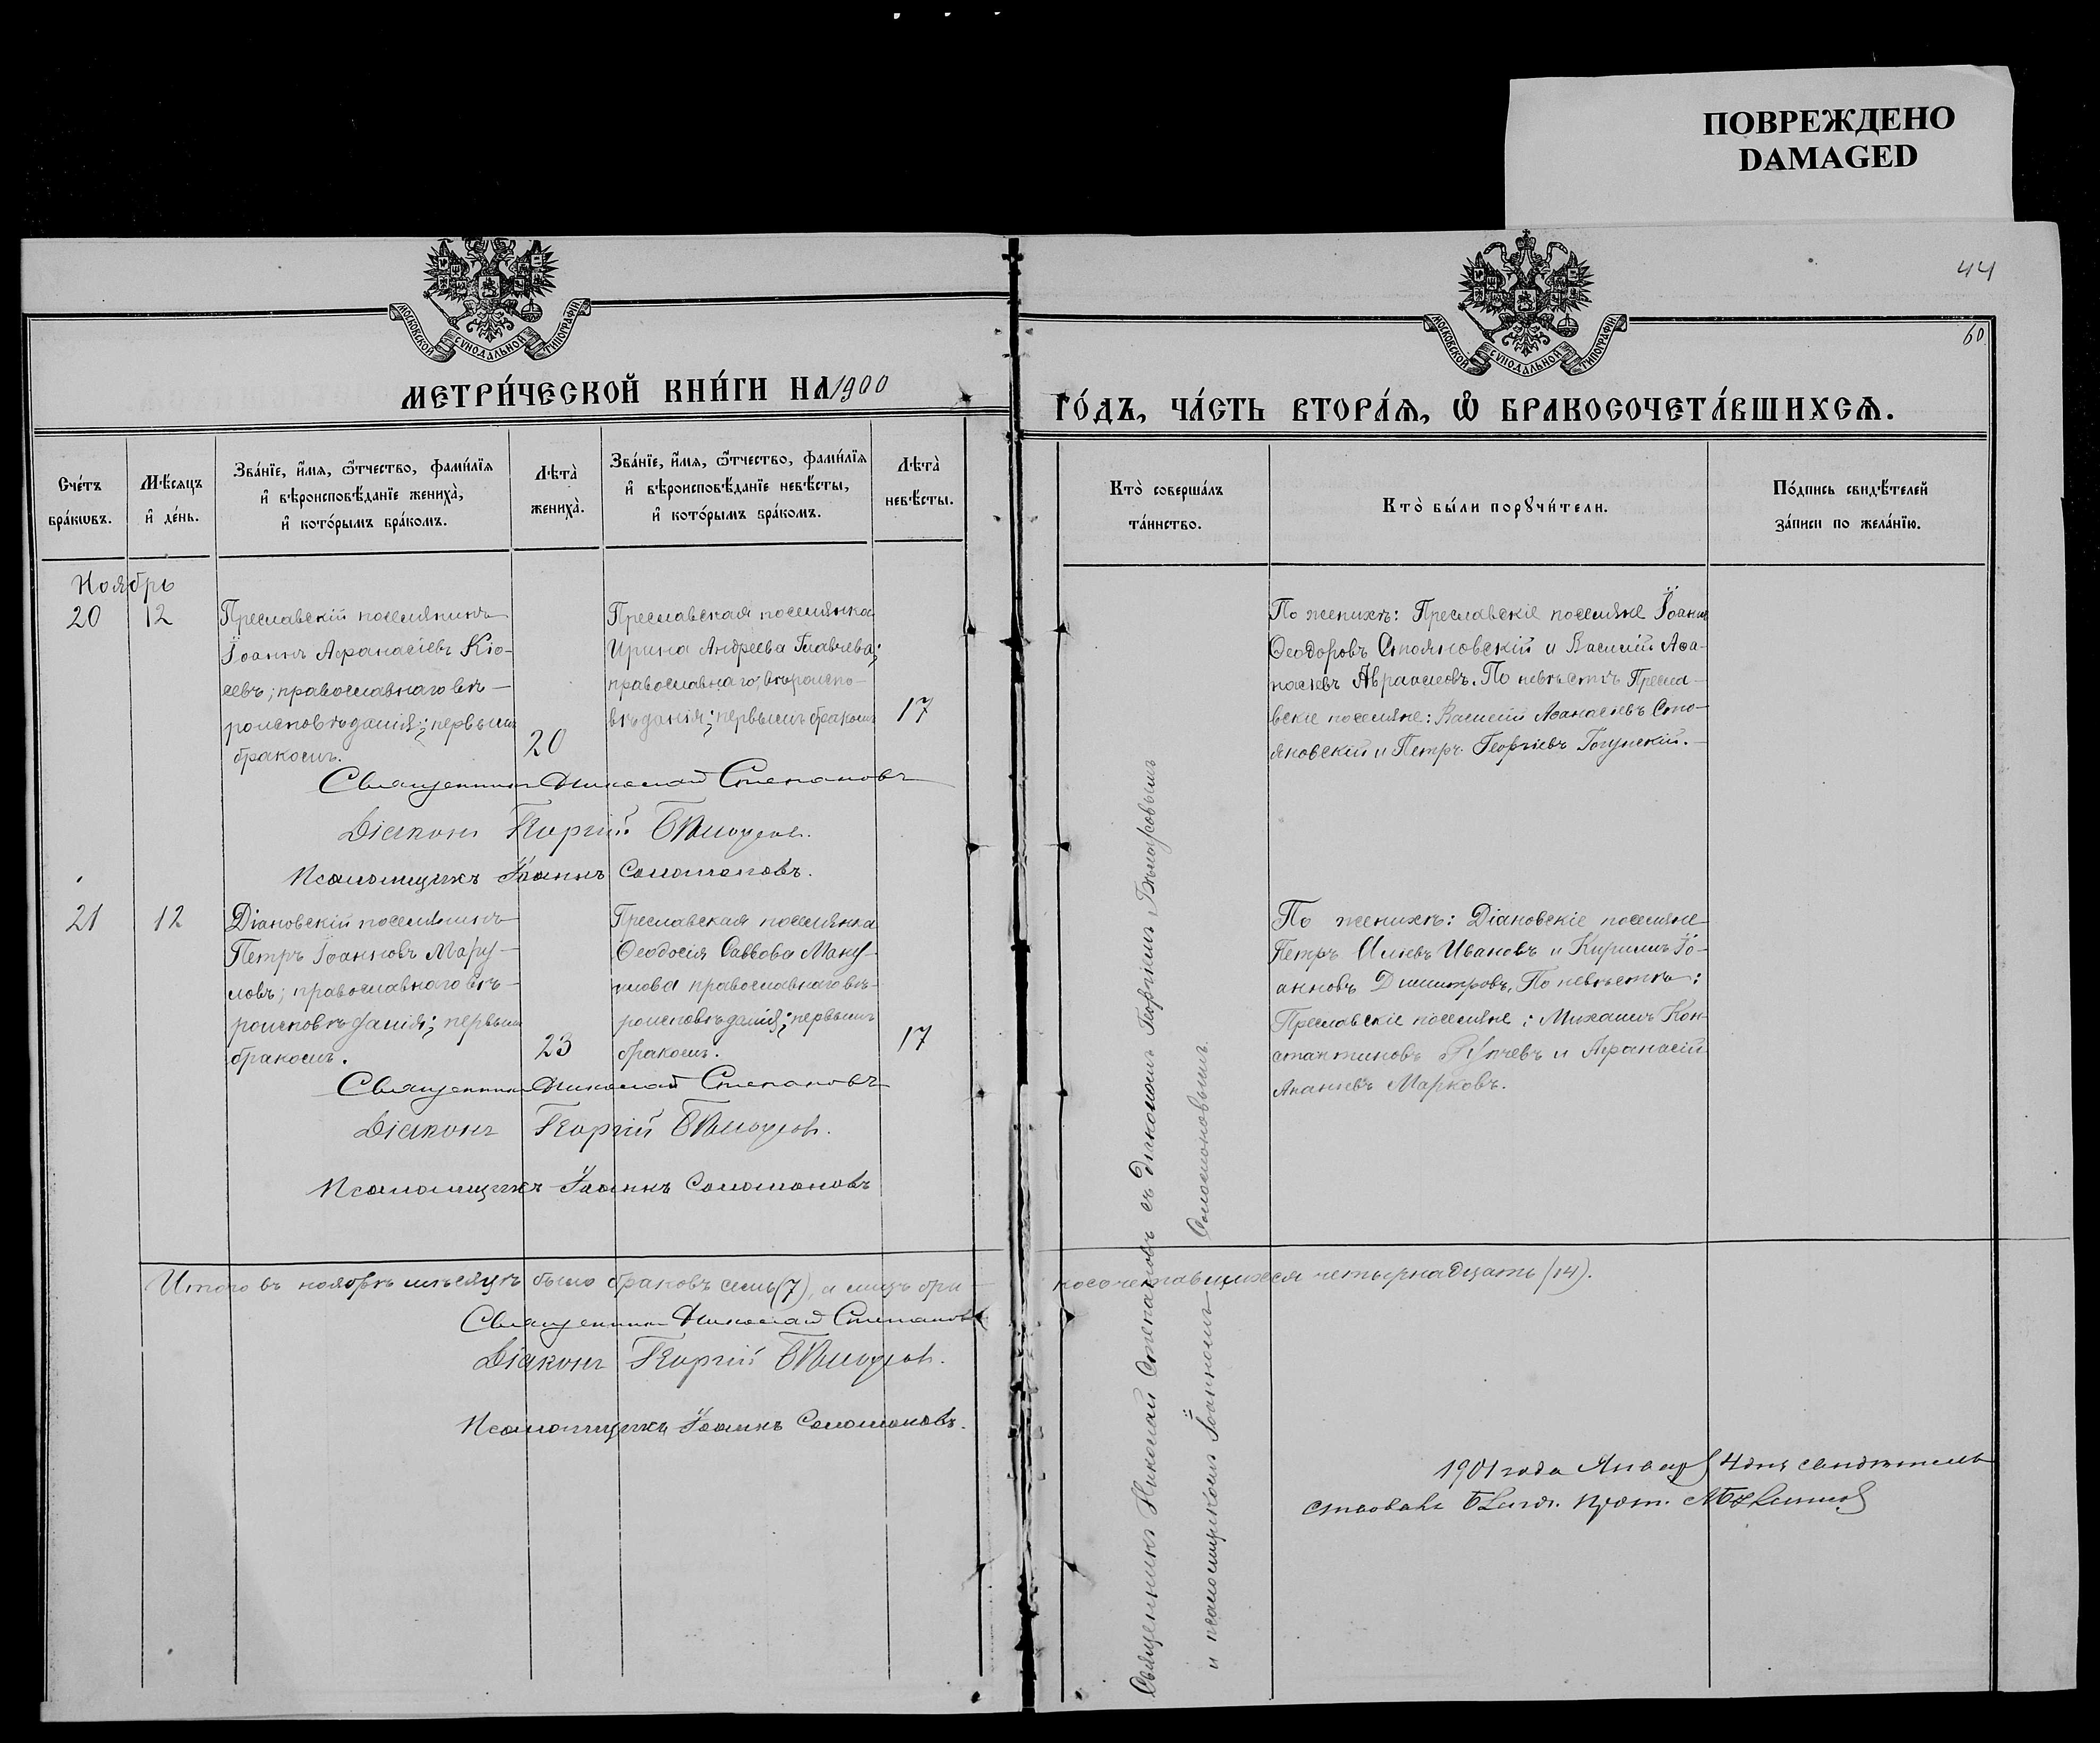 ПОВРЕЖДЕНО
DAMAGED
44
60
МОСКОВСКОЙ СѴНОДАЛЬНОЙ ТИПОГРАФІИ
МОСКОВСКОЙ СѴНОДАЛЬНОЙ ТИПОГРАФІИ
МЕТРИ́ЧЕСКОЙ КНИ́ГИ НА 1900
ГО́ДЪ, ЧА́СТЬ ВТОРА́Я, Ѽ БРАКОСОЧЕТА́ВШИХСЯ.
Сче́тъ
бра́кѡвъ.
Мѣ́сяцъ
и҆ де́нь.
Зва́нїе, и҆́мя, ѻ҆́тчество, фами́лїя
и҆ вѣроисповѣ́данїе жениха̀,
и҆ кото́рымъ бра́комъ.
Лѣта̀
жениха̀.
Зва́нїе, и҆́мя, ѻ҆́тчество, фами́лїя
и҆ вѣроисповѣ́данїе невѣ́сты,
и҆ кото́рымъ бра́комъ.
Лѣта̀
невѣ́сты.
Кто̀ соверша́лъ
та́инство.
Кто̀ бы́ли порꙋчи́тели.
По́дпись свидѣ́телей
за́писи по жела́нїю.
Ноябрь
20
12
Преславскій поселянинъ
Іоаннъ Афанасіевъ Кіо-
севъ; православнаго вѣ-
роисповѣданія; первымъ
бракомъ.
20
Преславская поселянка
Ирина Андреева Главчева;
православнаго вѣроиспо-
вѣданія; первымъ бракомъ
17
По женихѣ: Преславскіе поселяне Іоаннъ
Ѳеодоровъ Стояновскій и Василій Аѳа-
насіевъ Авраамовъ. По невѣстѣ Пресла-
вскіе поселяне: Василій Аѳанасіевъ Сто-
яновскій и Петръ Георгіевъ Гогунскій.
Священникъ Николай Степановъ
Діаконъ Георгій
Псаломщикъ Іоаннъ Соломоновъ.
21
12
Діановскій поселянинъ
Петръ Іоанновъ Мару-
ловъ; православнаго вѣ-
роисповѣданія; первымъ
бракомъ.
23
Преславская поселянка
Ѳеодосія Саввова Ману-
илова православнаго вѣ-
роисповѣданія; первымъ
бракомъ.
17
По женихѣ: Діановскіе поселяне
Петръ Иліевъ Ивановъ и Кириллъ Іо-
анновъ Димитровъ. По невѣстѣ:
Преславскіе поселяне: Михаилъ Кон-
стантиновъ и Афанасій
Ананіевъ Марковъ.
Священникъ Николай Степановъ
Діаконъ Георгій
Псаломщикъ Іоаннъ Соломоновъ
Священникъ Николай Степановъ съ діакономъ Георгіемъ
и псаломщикомъ Іоанномъ Соломоновымъ.
Итого въ ноябрѣ мѣсяцѣ было браковъ семь (7), а лицъ бра-
косочетавшихся четырнадцать (14).
Священникъ Николай Степановъ
Діаконъ Георгій
Псаломщикъ Іоаннъ Соломоновъ.
1901 года Января 4 дня свидѣтель
ствовалъ прот.